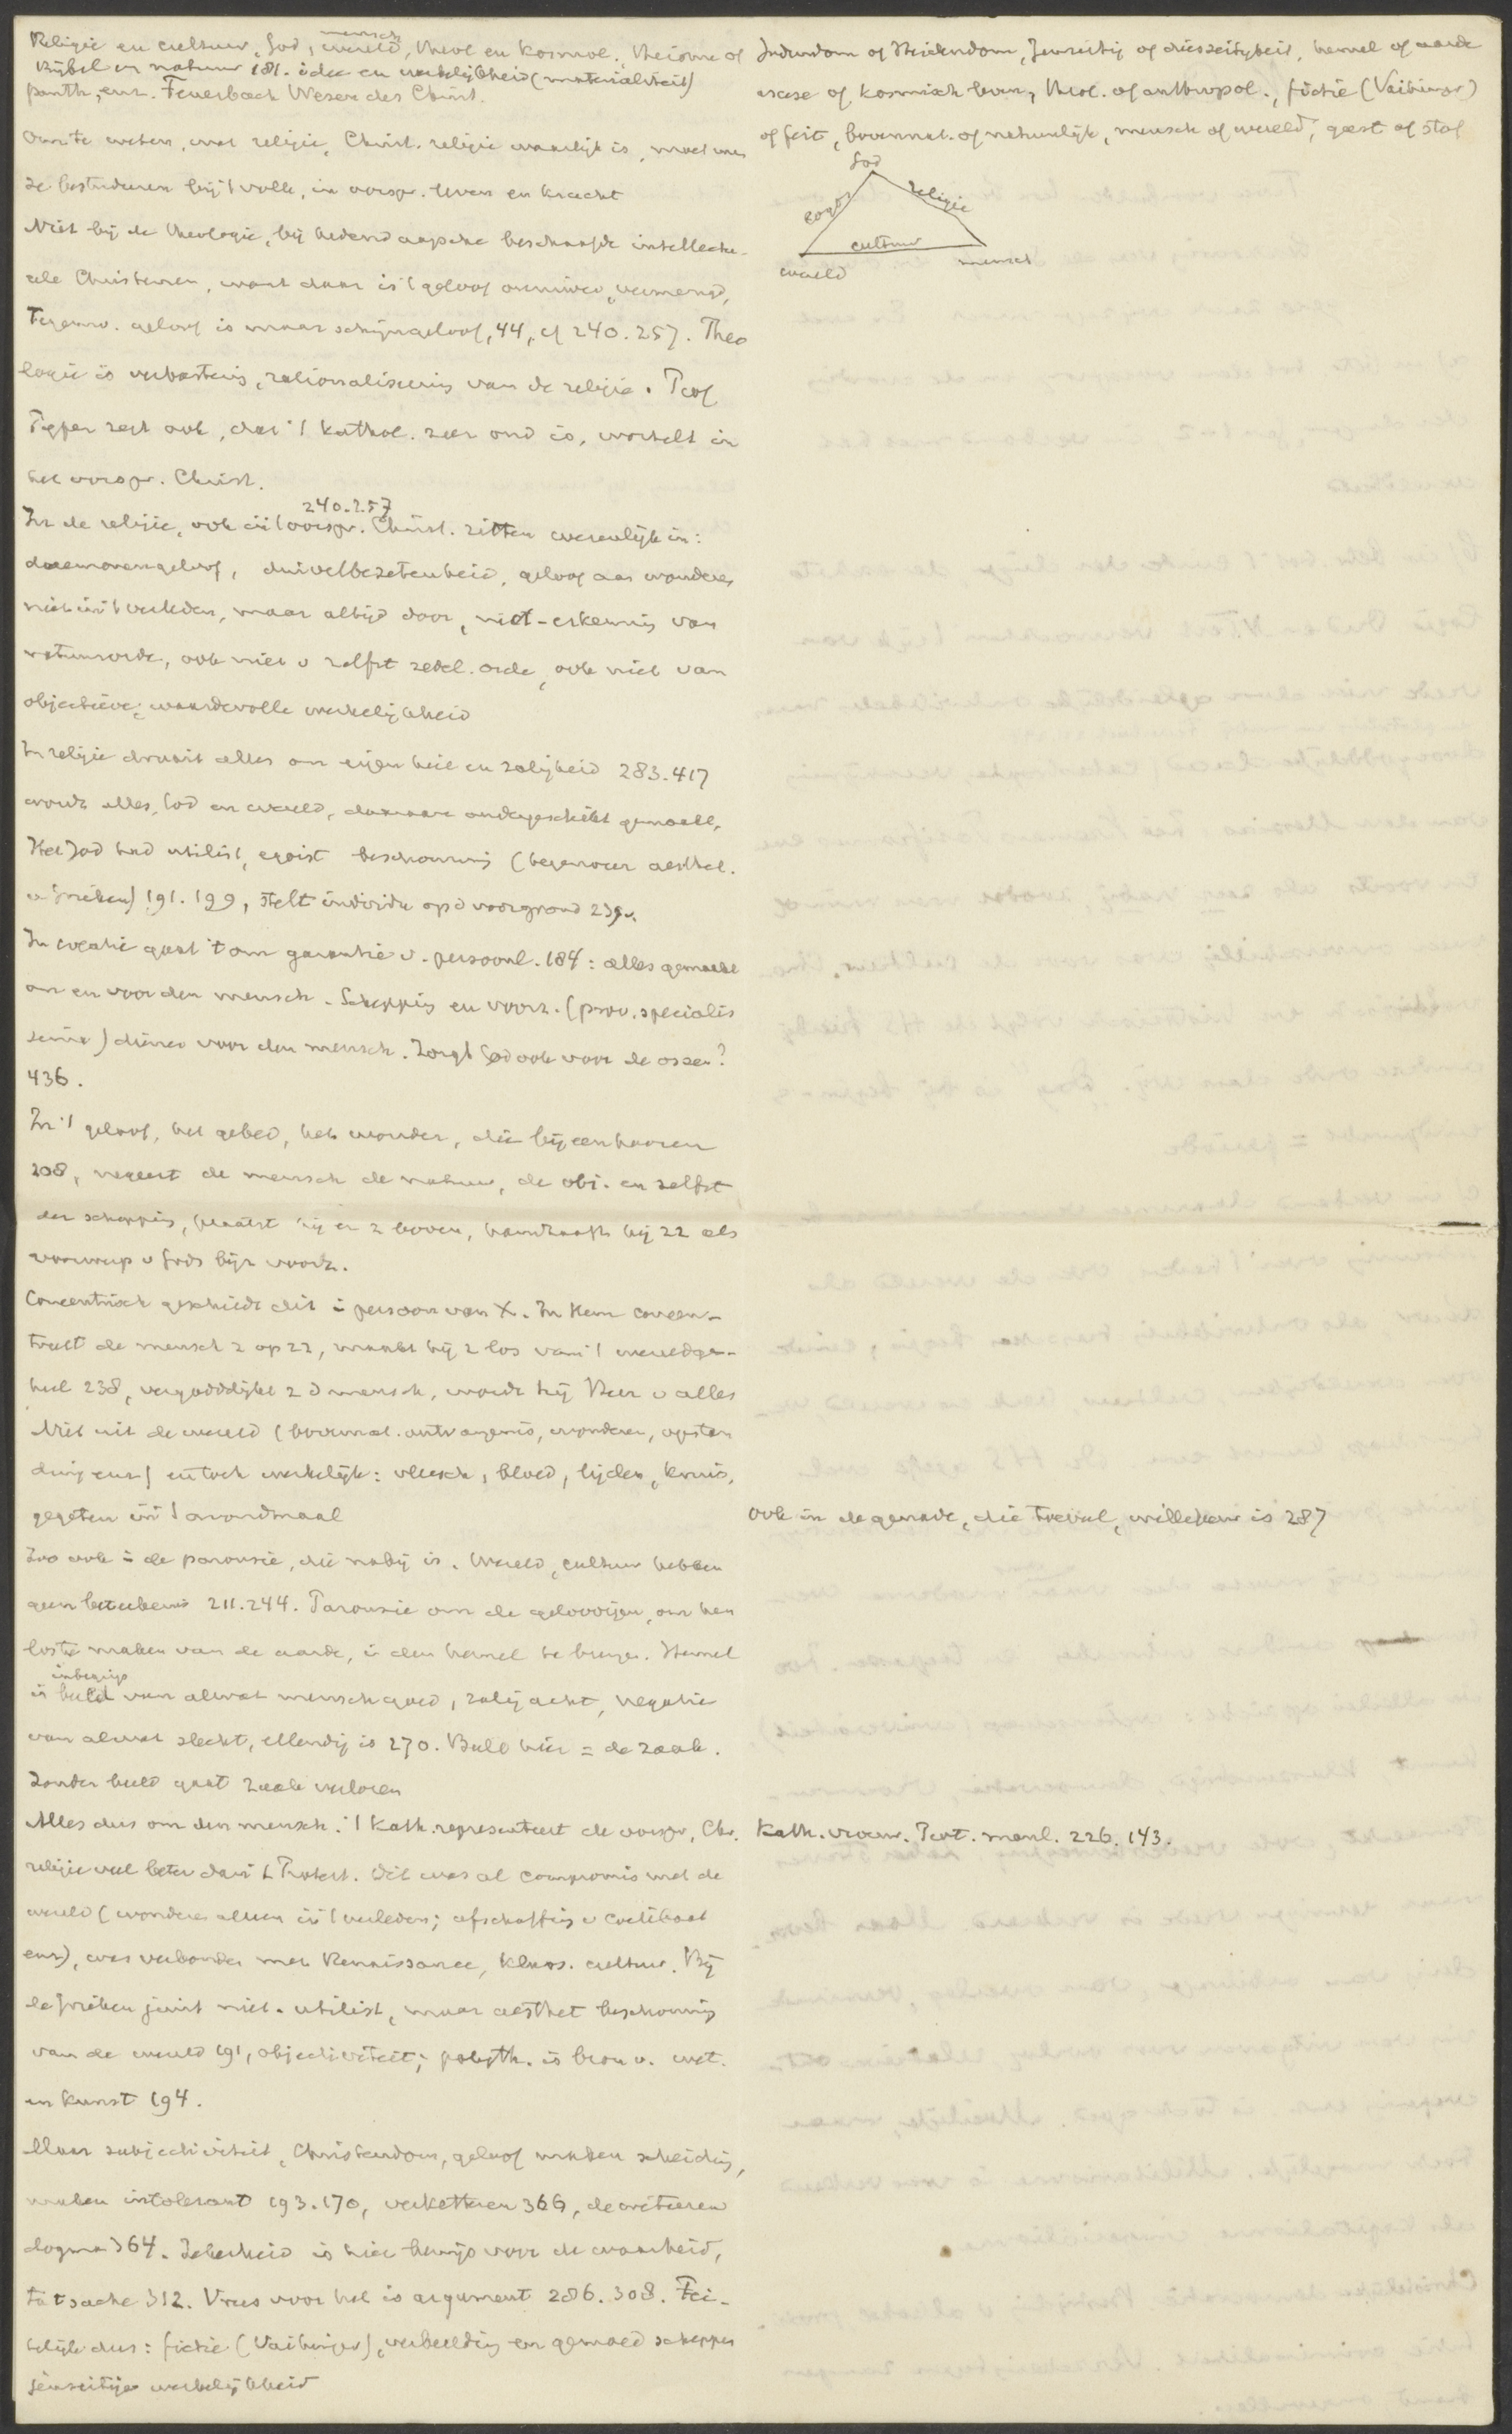 Religie en cultuur, God, wereld, theol en kosmol., theisme of
mensch
Bijbel en natuur 181. idee en werkelijkheid (materialiteit)
panth, enz. Feuerbach Wesen des Christ.
Om te weten, wat religie, Christ. religie waarlijk is, moet men
ze bestuderen bij 't volle, in oorspr. leven en kracht
Niet bij de theologie, bij hedendaagsche beschaafde intellectu-
ele Christenen, want daar is 't geloof vermengd,
Tegenw. geloof is maar schijngeloof, 44, cf 240. 257. Theo
logie is verbastering, rationaliseering van de religie. Prof
Pijper zegt ook, dat 't kathol. zeer oud is, wortelt in
het oorspr. Christ.
240.257
In de religie, ook in 't oorspr. Christ. zitten wezenlijk in:
daemonengeloof, duivelbezetenheid, geloof aan wonderen
niet in 't verleden, maar altijd door, niet-erkenning van
natuurorde, ook niet v zelfst zedel. orde, ook niet van
objectieve, waardevolle werkelijkheid
In religie draait alles om eigen heil en zaligheid 283.417
wordt alles, God en wereld, daaraan ondergeschikt gemaakt,
Het Jod had utilist, egoist beschouwing (tegenover aesthet.
v Grieken) 191. 199, stelt individu op d voorgrond 239v.
In creatie gaat 't om garantie v. persoonl. 184: alles gemaakt
om en voor den mensch. Schepping en voorz. (prov. specialis
sima) dienen voor den mensch. Zorgt God ook voor de ossen?
436.
In 't geloof, het gebed, het wonder, die bijeenhooren
208, negeert de mensch de natuur, de obj. en zelfst
der schepping, plaatst hij er z boven, handhaaft hij zz als
voorwerp v Gods bijz voorz.
Concentrisch geschiedt dit i persoon van X. In Hem concen-
treert de mensch z op zz, maakt hij z los van 't wereldge-
heel 238, vergoddelijkt z d mensch, wordt hij Heer v alles
Niet uit de wereld (bovennat. ontvangenis, wonderen, opstan
ding enz) en toch werkelijk: vleesch, bloed, lijden, kruis,
gegeten in 't avondmaal
Zoo ook i de parousie, die nabij is. Wereld, cultuur hebben
geen beteekenis 211.244. Parousie om de geloovigen, om hen
los te maken van de aarde, i den hemel te brengen. Hemel
inbegrip
is beeld van alwat mensch goed, zalig acht, negatie
van alwat slecht, ellendig is 270. Beeld hier = de zaak.
Zonder beeld gaat zaak verloren
Alles dus om den mensch. 't Kath. representeert de oorspr, Chr.
religie veel beter dan 't Protest. Dit was al compromis met de
wereld (wonderen alleen in 't verleden; afschaffing v coelibaat
enz), was verbonden met Renaissance, klass. cultuur. Bij
de Grieken juist niet utilist, maar aesthet beschouwing
van de wereld 191, objectiviteit; polyth. is bron v. wet.
en kunst 194.
Maar subjectiviteit, Christendom, geloof maken scheiding,
maken intolerant 193.170, verketteren 366, decreteeren
dogma 364. Zekerheid is hier bewijs voor de waarheid,
tatsache 312. Vrees voor hel is argument 286. 308. Fei-
telijk dus: fictie (Vaihinger), verbeelding en gemoed scheppen
jenseitige werkelijkheid
Jodendom of Heidendom, Jenseitig of diesseitigheid, hemel of aarde
ascese of kosmisch leven, theol. of anthropol., fictie (Vaihinger)
of feit, bovennat. of natuurlijk, mensch of wereld, geest of stof
God
logos religie
cultuur
wereld mensch
ook in de genade, die toeval, willekeur is 287
Kath. vrouw. Prot. manl. 226. 143.